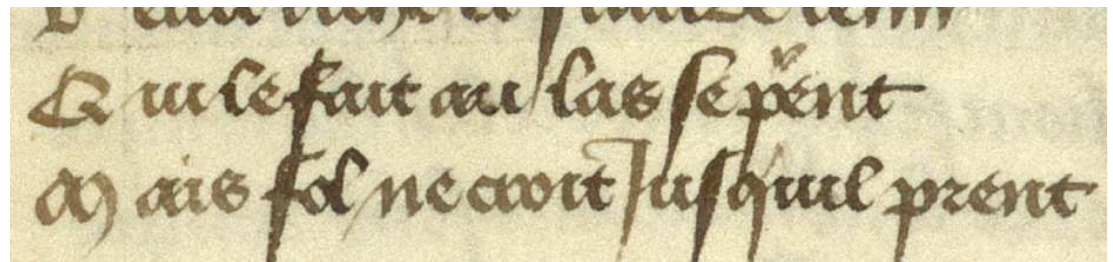 Qui le fait au las se pent
Mais fol ne croit Jusquil prent